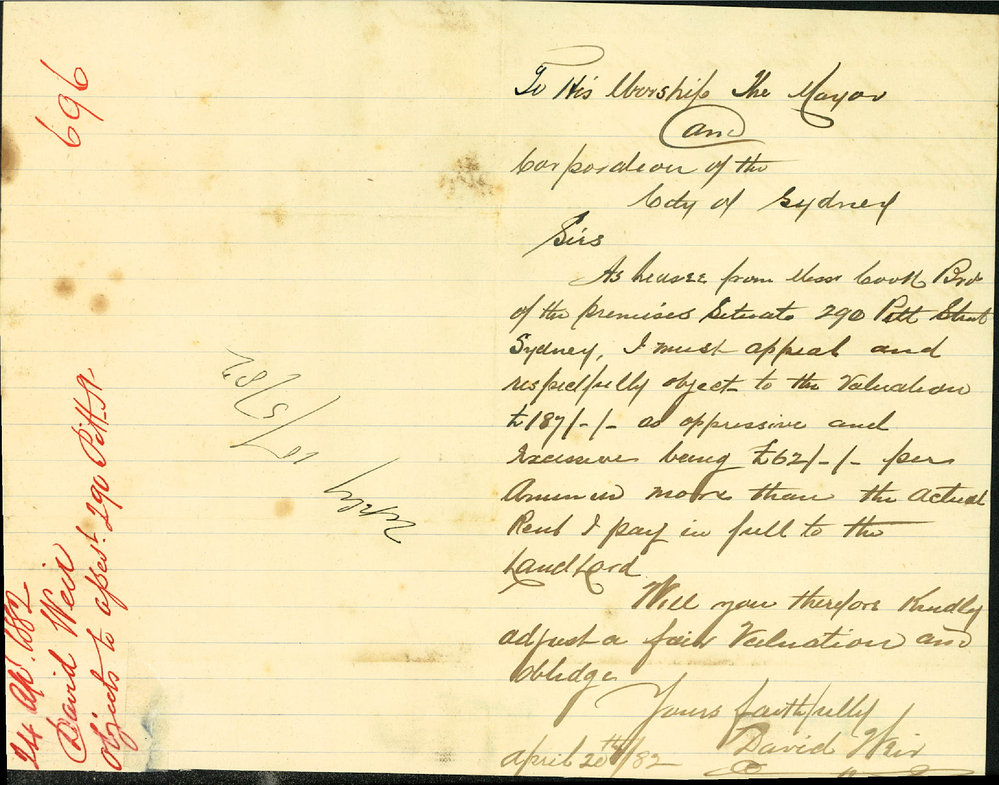 To His Worship The Mayor
and
Corporation of the
City of Sydney
Sirs
As leasee from Mess Cook Bros
of the premises Situate 290 Pitt Street
Sydney, I must appeal and
respectfully object to the Valuation
£187/-/- as oppressive and
Excessive being £62/-/- per
Annum more than the actual
Rent I pay in full to the
Landlord
Will you therefore Kindly
adjust a fair Valuation and
oblidge
Yours faithfully
David Weir
April 20th/82
696
24 Apl. 1882
David Weir
Objects to assest. 290 Pitt St.
Reply
10/5/82